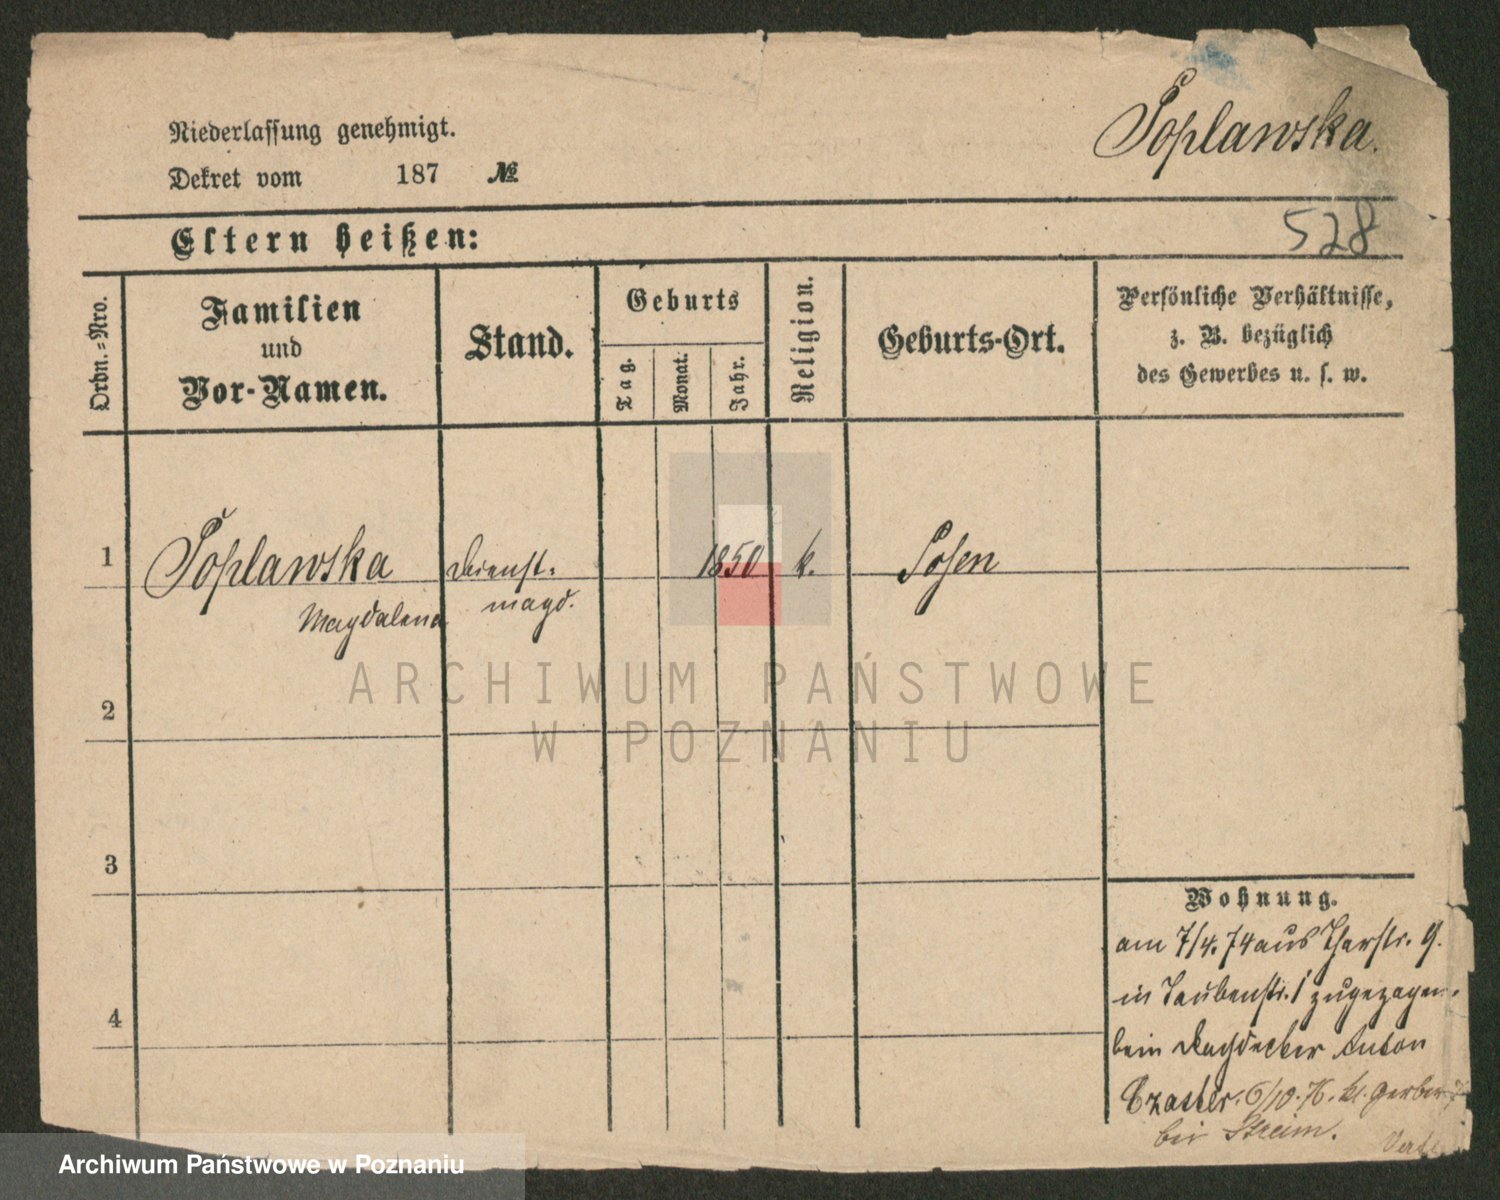 Niederlassung genehmigt.
Poplawska.
Dekret vom 187 №
Eltern heißen:
528
Ordn.-Nro.
Familien
und
Vor-Namen.
Stand.
Geburts
Tag.
Monat.
Jahr.
Religion.
Geburts-Ort.
Persönliche Verhältnisse,
z. B. bezüglich
des Gewerbes u. s. w.
1 Poplawska Dienst- 1850 k. Posen
Magdalena magd.
ARCHIWUM PAŃSTWOWE
W POZNANIU
2
3
4
Wohnung.
am 7/4. 74 aus 9.
in Taubenstr. 1 zugezogen.
beim Dachdecker Anton
6/10. 76. kl. Gerber
bei
Archiwum Państwowe w Poznaniu